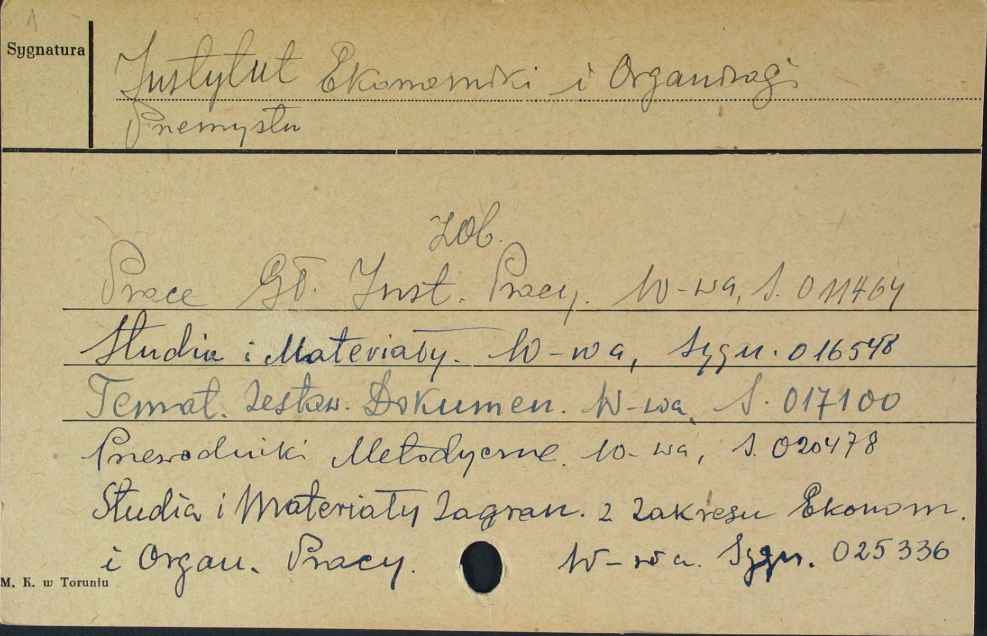 1
Sygnatura
Instytut Ekonomiki i Organizacji
Przemysłu
Zob.
Prace Gł. Inst. Pracy. W-wa, S. 011464
Studia i Materiały. W-wa, Sygn. 016548
Temat. Zestaw. Dokumen. W-wa, S. 017100
Przewodniki Metodyczne. W-wa, S. 020478
Studia i Materiały Zagran. z Zakresu Ekonom.
i Organ. Pracy. W-wa. Sygn. 025336
M. K. w Toruniu